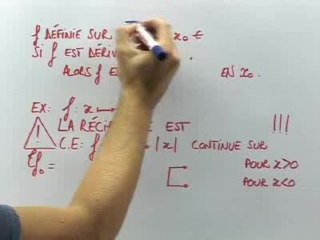 f DÉFINIE SUR x₀ ∈
SI f EST DÉRIV .
ALORS f E EN x₀.
EX: f: x ↦
LA RÉCI EST !!!
C.E: f |x| CONTINUE SUR
ℰf₀ = POUR x>0
POUR x<0